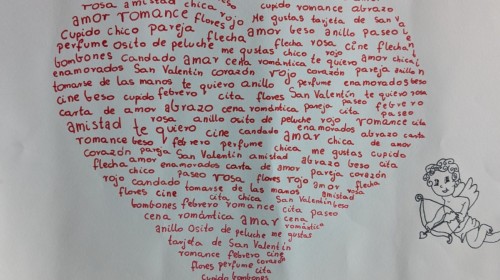 rosa amistad chica rojo cupido romance abrazo
amor romance flores me gustas tarjeta de San
Cupido chico pareja flecha amor beso anillo paseo
perfume osito de peluche me gustas flecha rosa cine flecha
bombones candado amar cena romántica te quiero amor chica
enamorados San Valentín corazón rojo corazón pareja anillo
tomarse de las manos te quiero anillo perfume enamorados beso
cine beso cupido febrero cita flores San Valentín te quiero rosa
carta de amor abrazo cena romántica pareja paseo febrero
rosa anillo osito de peluche rojo romance cita
amistad te quiero cine candado enamorados amar abrazo carta
romance beso febrero perfume chica chica de amor
corazón pareja San Valentín amistad me gustas cupido
flecha amor enamorados carta de amor abrazo beso cita
chico paseo rosa flores rojo pareja corazón
rojo candado tomarse de las manos amor rosa flecha
flores cine cita chica San Valentín amistad
bombones febrero romance cita paseo beso
cena romántica amar cena romántica
anillo osito de peluche me gustas
tarjeta de San Valentín
romance febrero cine
flores perfume corazón
cita
cupido bombones